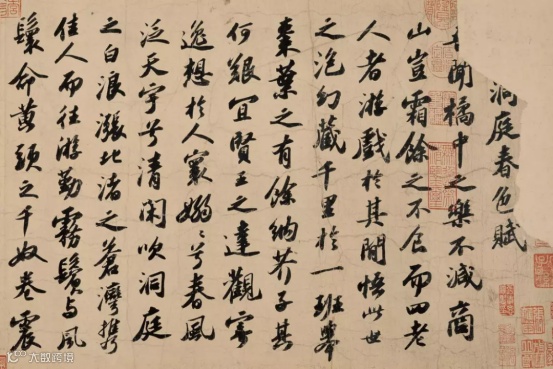 洞庭春色賦
聞橘中之樂不減商
山豈霜餘之不食而四老
人者游戲於其間悟此世
之泡幻藏千里於一班舉
棗葉之有餘納芥子其
何艱宜賢王之達觀寄
逸想於人寰嫋〻兮春風
泛天宇兮清閑吹洞庭
之白浪漲北渚之蒼灣攜
佳人而往游勤霧鬢与風
鬟命黃頭之千奴卷震
大数跨境